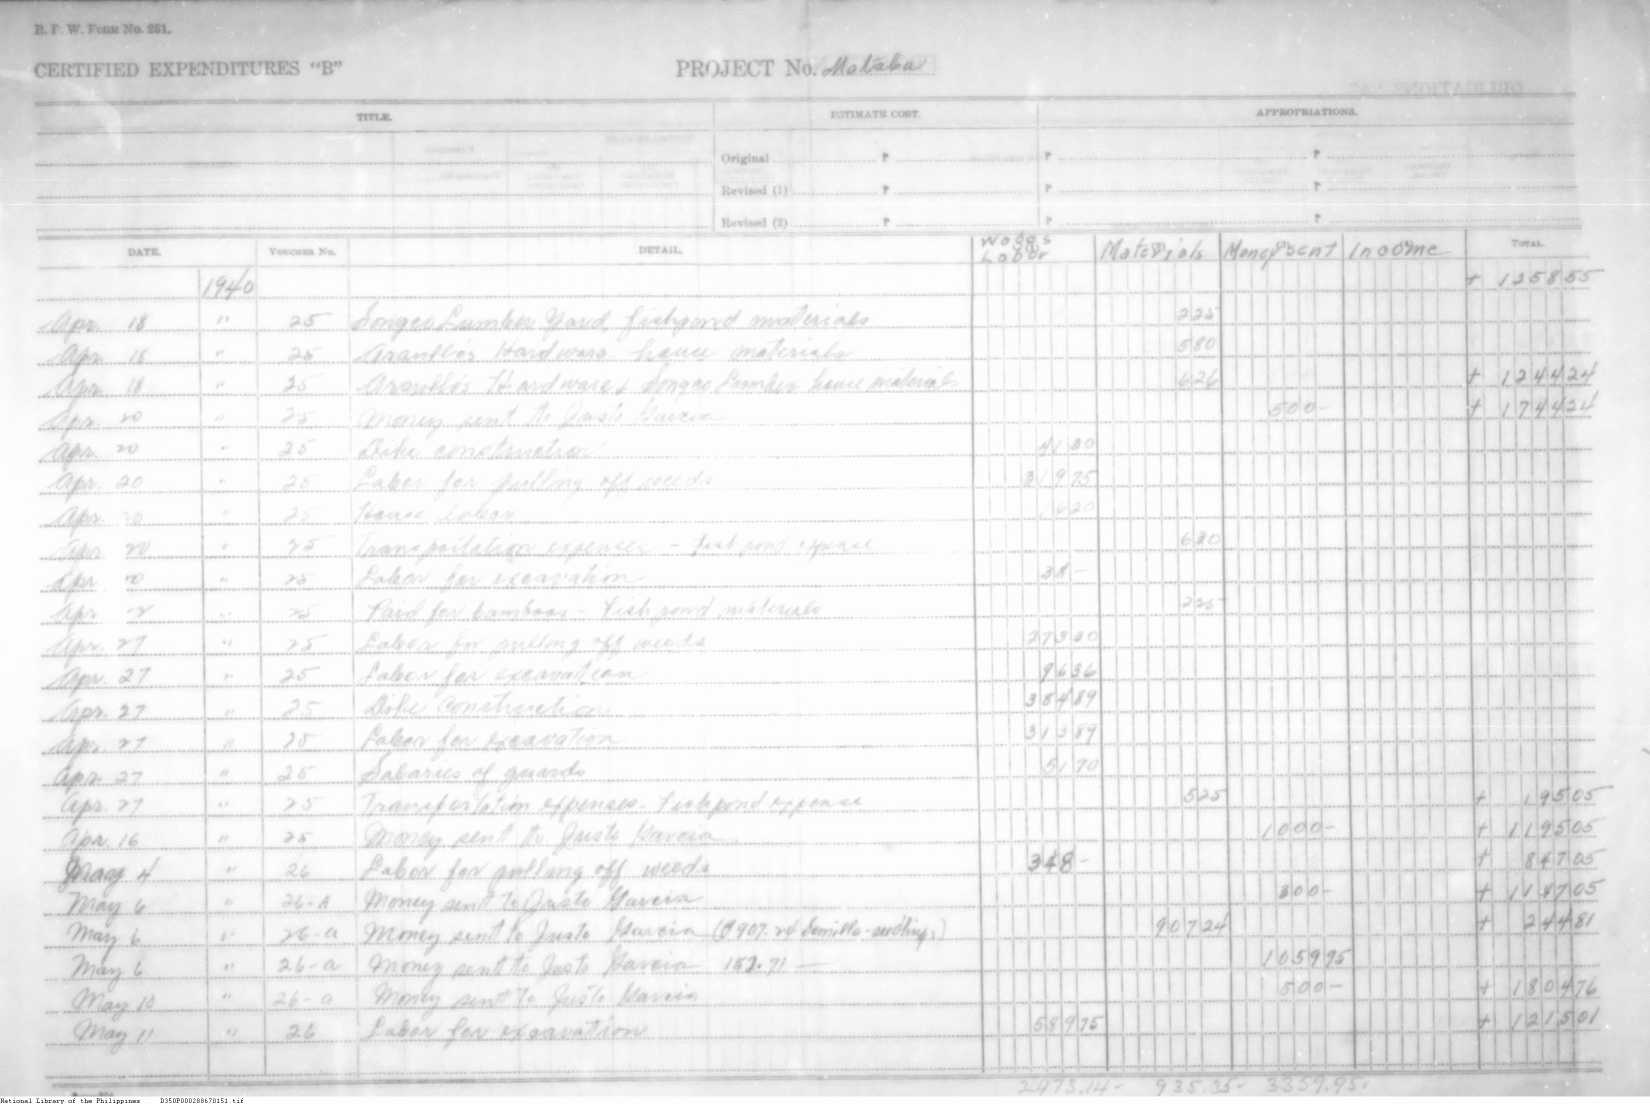 B. P. W. Form No. 251.
CERTIFIED EXPENDITURES "B" PROJECT No. Mataba
TITLE. ESTIMATE COST. APPROPRIATIONS.
Original ₱ ₱ ₱
Revised (1) ₱ ₱ ₱
Revised (2) ₱ ₱ ₱
DATE. VOUCHER No. DETAIL. Wages Labor Materials Money Sent Income TOTAL.
1940 + 1258 55
Apr. 18 " 25 Songco Lumber Yard, fishpond materials 2 25
Apr. 18 " 25 Hardware house materials 5 80
Apr. 18 " 25 Hardware & Songco Lumber house materials 6 26 + 1244 24
Apr. 20 " 25 Money sent to Justo Garcia 500 - + 1744 24
Apr. 20 " 25 Dike construction 41 20
Apr. 20 " 25 Labor for pulling off weeds 319 75
Apr. 20 " 25 House labor
Apr. 20 " 25 Transportation expenses - Fishpond expense
Apr. 20 " 25 Labor for excavation 38 -
Apr. " 25 Paid for bamboos - Fishpond materials 2 25
Apr. 27 " 25 Labor for pulling off weeds 273 20
Apr. 27 " 25 Labor for excavation 96 36
Apr. 27 " 25 Dike Construction 384 89
Apr. 27 " 25 Labor for excavation 313 89
Apr. 27 " 25 Salaries of guards 51 70
Apr. 27 " 25 Transportation expenses - Fishpond expense 5 25 + 195 05
Apr. 16 " 25 Money sent to Justo Garcia 1000 - + 1195 05
May 4 " 26 Labor for pulling off weeds 348 - + 847 05
May 6 " 26-A Money sent to Justo Garcia 300 - + 1147 05
May 6 " 26-a Money sent to Justo Garcia (₱907.24 Semilla-seedlings) 907 24 + 244 81
May 6 " 26-a Money sent to Justo Garcia 152.71 — 1059 95
May 10 " 26-a Money sent to Justo Garcia 500 - + 1804 76
May 11 " 26 Labor for excavation 589 75 + 1215 01
2473.14 - 935.35 - 3359.95 -
National Library of the Philippines D350P000288670151.tif